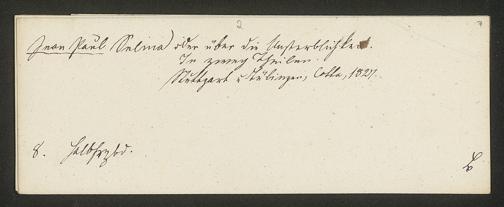 2
Jean Paul Selina) oder über die Unsterblichkeit.
In zwey Theilen.
Stuttgart u Tübingen, Cotta, 1827.
8. Halbfrzbd.